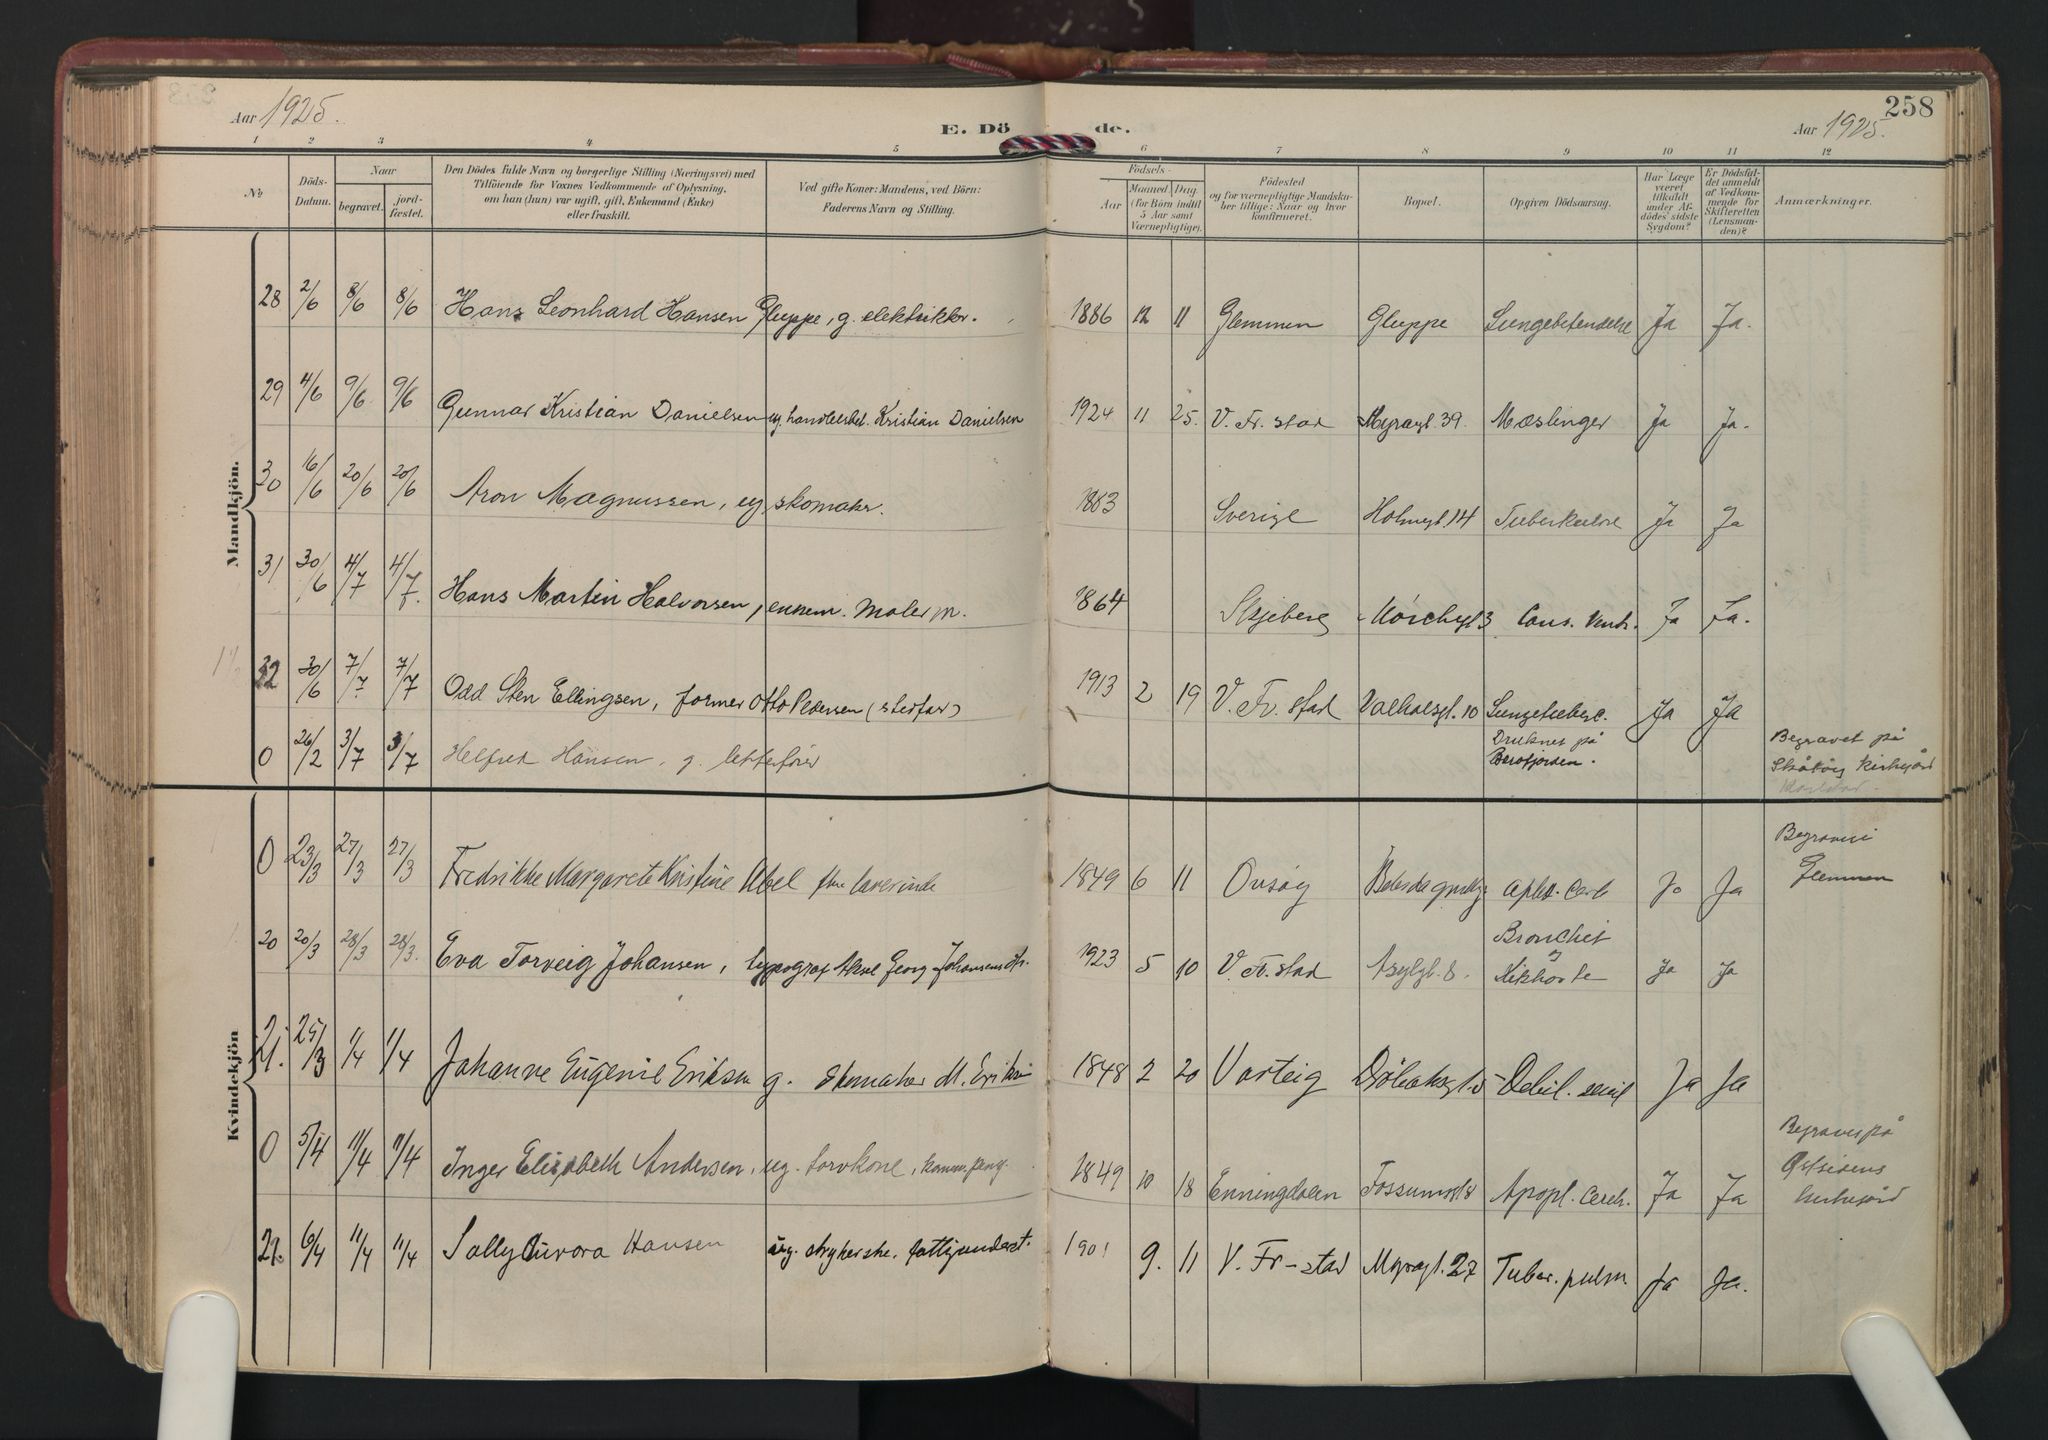 258
Aar 1925.
E. Döde.
Aar 1925.
1 2 3 4 5 6 7 8 9 10 11 12
No
Döds-Datum.
Naar
begravet.
jord-fæstet.
Den Dödes fulde Navn og borgerlige Stilling (Næringsvei) med
Tilföiende for Voxnes Vedkommende af Oplysning,
om han (hun) var ugift, gift, Enkemand (Enke)
eller fraskilt.
Ved gifte Koner: Mandens, ved Börn:
Faderens Navn og Stilling.
Födsels-
Aar
Maaned. Dag.
(for Börn indtil
5 Aar samt
Værnepligtige).
Födested
og for værnepligtige Mandskaber tillige: Naar og hvor
konfirmeret.
Bopæl.
Opgiven Dödsaarsag.
Har Læge
været
tilkaldt
under Afdödes sidste
Sygdom?
Er Dödsfaldet anmeldt
af Vedkommende for
Skifteretten
(Lensmanden)?
Anmærkninger.
Mandkjön.
28 2/6 8/6 8/6 Hans Leonhard Hansen Gluppe, g. elektriker. 1886 12 11 Glemmen Gluppe Lungebetendelse Ja Ja.
29 4/6 9/6 9/6 Gunnar Kristian Danielsen ug. handelsbet. Kristian Danielsen 1924 11 25. V. Fr. stad Myragt. 39. Mæslinger Ja Ja.
30 16/6 20/6 20/6 Aron Magnussen, ug. skomaker. 1883 Sverige Holmegt. 14 Tuberkulose Ja Ja
31 30/6 4/7 4/7. Hans Martin Halvorsen, enkem. malerm. 1864 Skjeberg 3 Canc. Ventr. Ja Ja.
32 30/6 7/7 7/7 Odd Sten Ellingsen, former Otto Pedersen (stedfar) 1913 2 19 V. Fr. stad Valhalsgt. 10 Lungetuberc. Ja Ja
0 26/2 3/7 3/7 Helfred Hansen, g. letterfører Druknet på
Begravet på
Skåtøy kirkegård
Kvindekjön
0 23/3 27/3 27/3 Fredrikke Margarete Kristine Abel fhv lærerinde 1849 6 11 Onsøy Ja Ja Begravet i
Glemmen
20 20/3 28/3 28/3. Eva Torveig Johansen, typograf Aksel Georg Johansens dt. 1923 5 10 V. Fr. stad Asylgt. 8. Bronchit
og
Kikhoste Ja Ja
21. 25/3 1/4 1/4 Johanne Eugenie Eriksen g. skomaker M. Eriksen 1848 2 20 Varteig Debil. senil Ja Ja
0 5/4 11/4 11/4 Inger Elisabeth Andersen, ug. torvkone, komm. peng. 1849 10 18 Enningdalen Fossumsgt 8 Apopl. cereb. Ja Ja Begravet på
Østsidens
kirkegård
22. 6/4 11/4 11/4 Sally Aurora Hansen ug. strykerske. fattigunderst. 1901 9. 11 V. Fr-stad Myragt. 27 Tuber. pulm. Ja Ja.